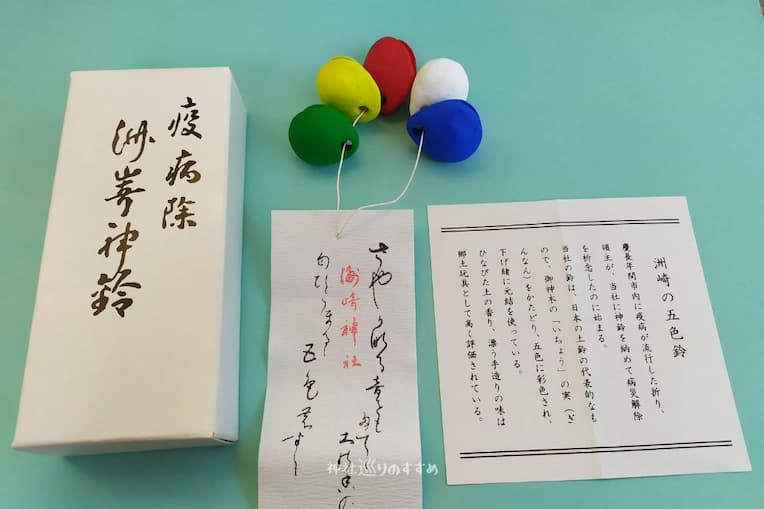 疫病除
洲嵜神鈴
洲崎神社
五色
洲崎の五色鈴
慶長年間市内に疫病が流行した折り、
領主が、当社に神鈴を納めて病災解除
を祈念したのに始まる。
当社の鈴は、日本の土鈴の代表的なも
ので、御神木の「いちょう」の実（ぎ
んなん）をかたどり、五色に彩色され、
下げ緒に元結を使っている。
ひなびた土の香り、漂う手造りの味は
郷土玩具として高く評価されている。
神社巡りのすすめ